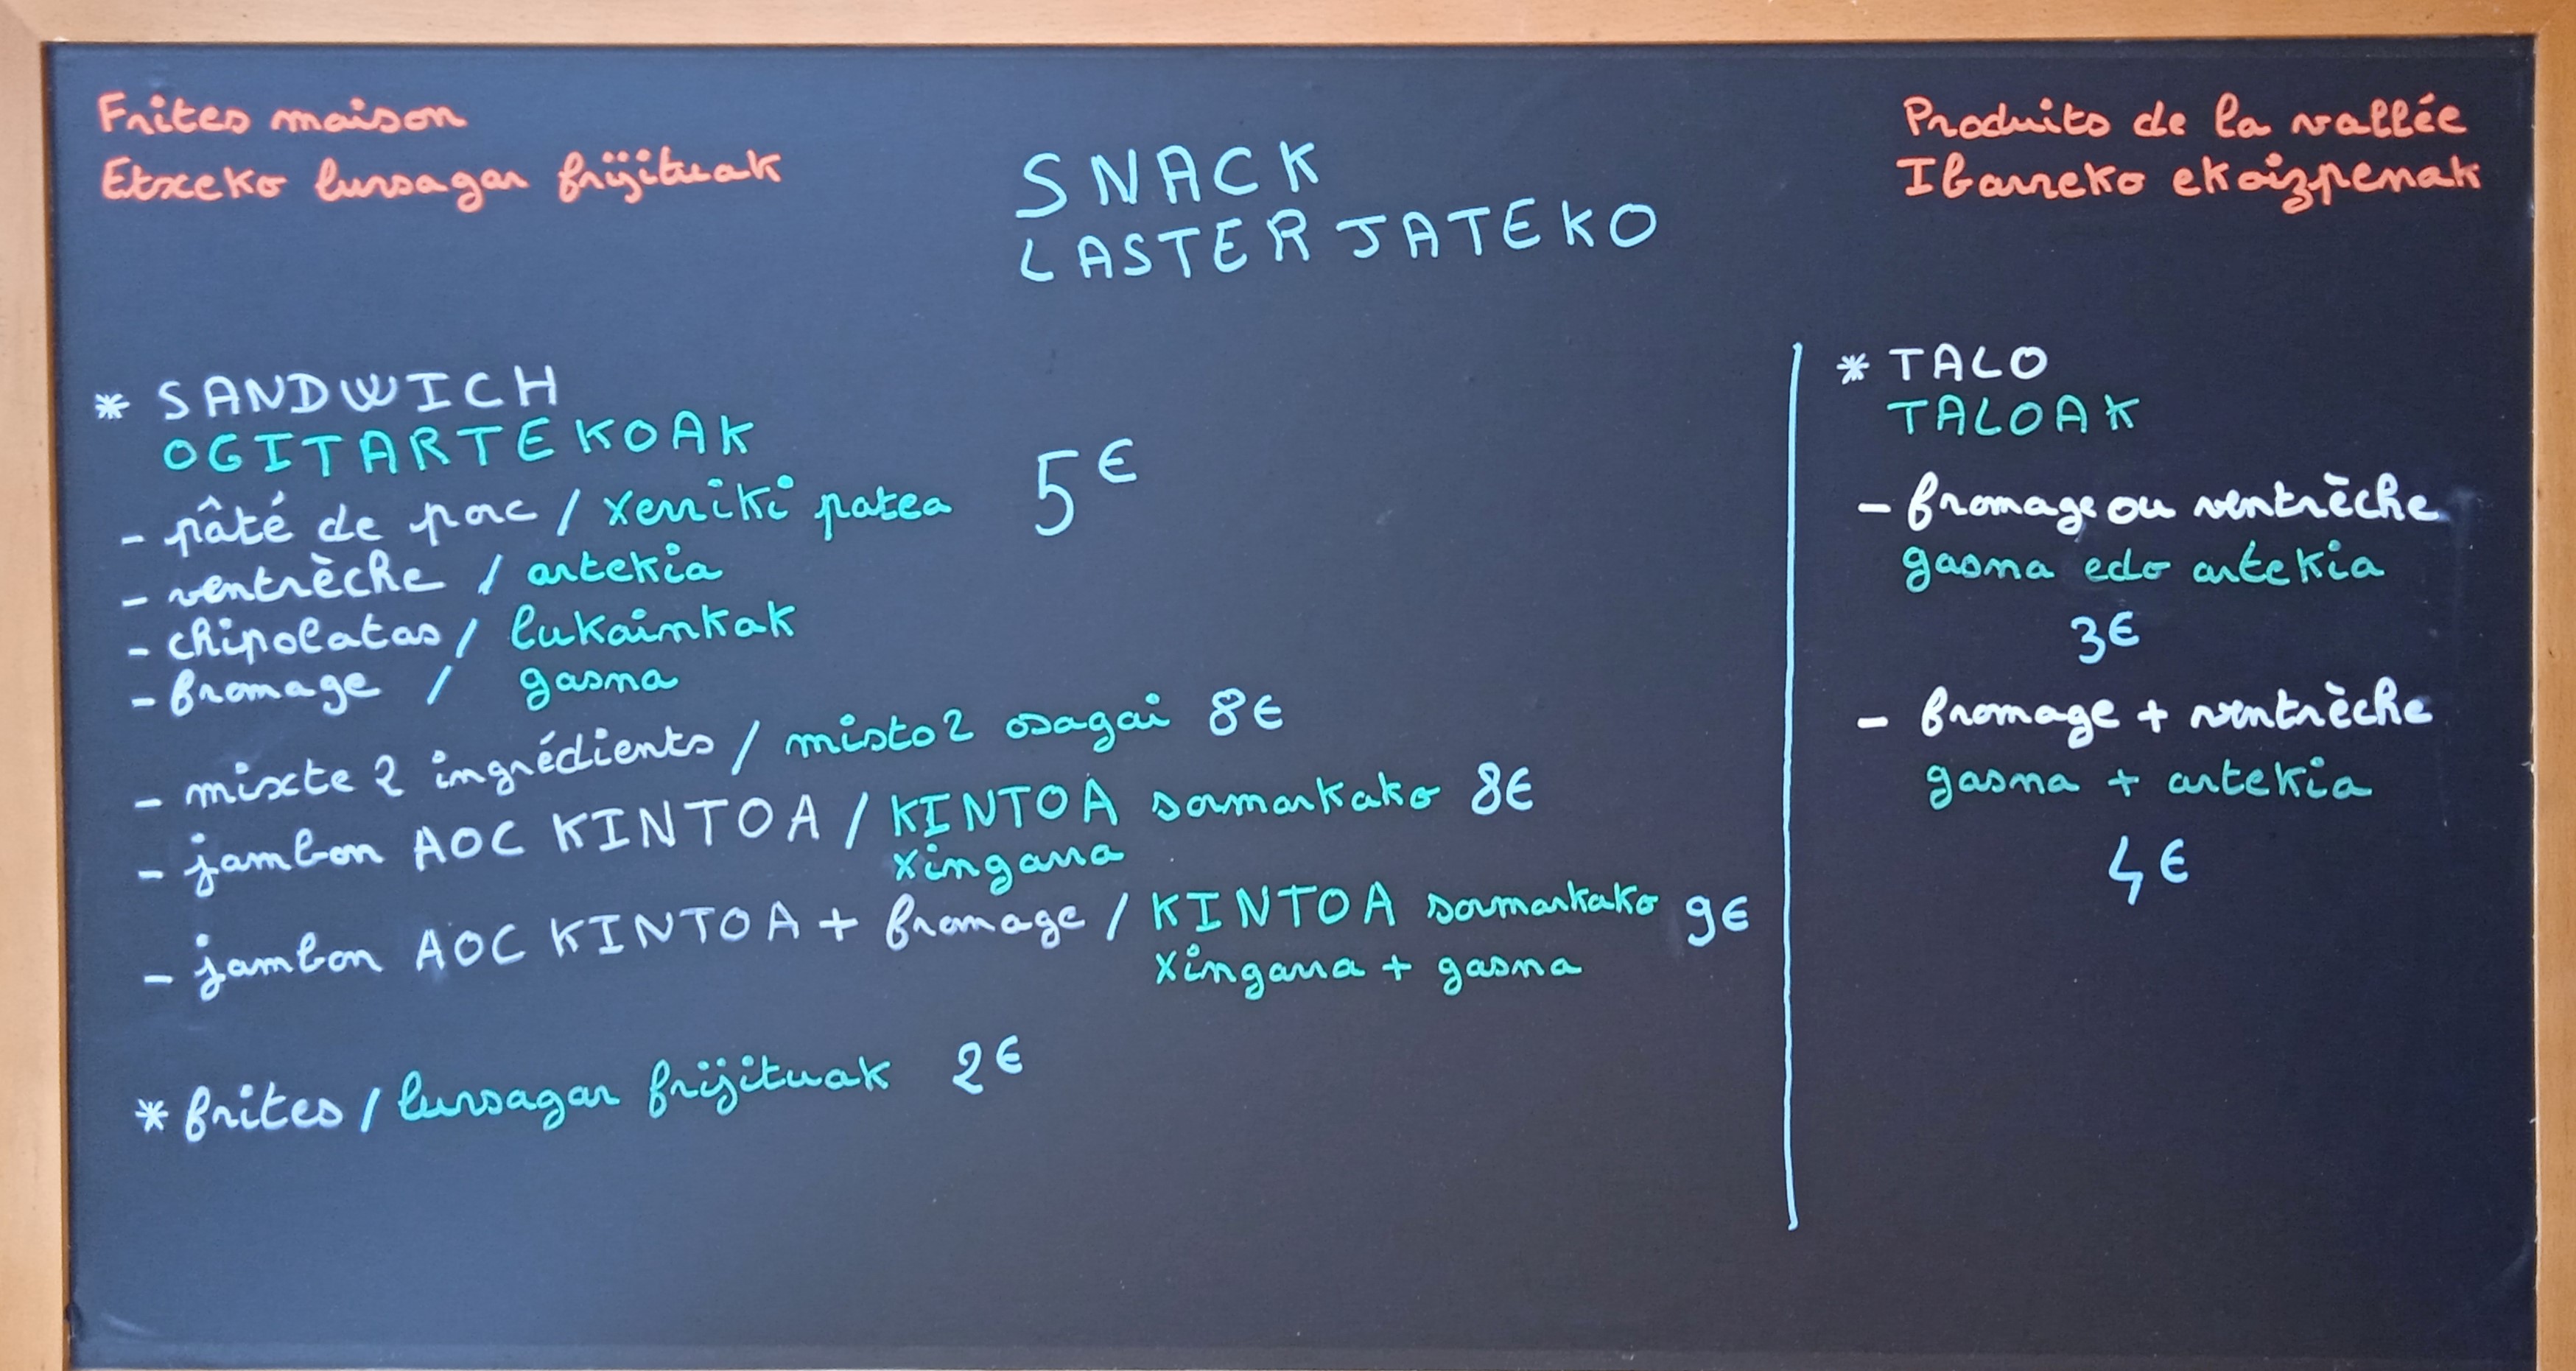 Frites maison
Etxeko lursagar frijituak
SNACK
LASTER JATEKO
Produits de la vallée
Ibarreko ekoizpenak
* SANDWICH
OGITARTEKOAK
- pâté de porc / xerriki patea 5€
- ventrèche / artekia
- chipolatas / lukainkak
- fromage / gasna
- mixte 2 ingrédients / misto 2 osagai 8€
- jambon AOC KINTOA / KINTOA sormarkako 8€
xingarra
- jambon AOC KINTOA + fromage / KINTOA sormarkako 9€
xingarra + gasna
* frites / lursagar frijituak 2€
* TALO
TALOAK
- fromage ou ventrèche
gasna edo artekia
3€
- fromage + ventrèche
gasna + artekia
4€